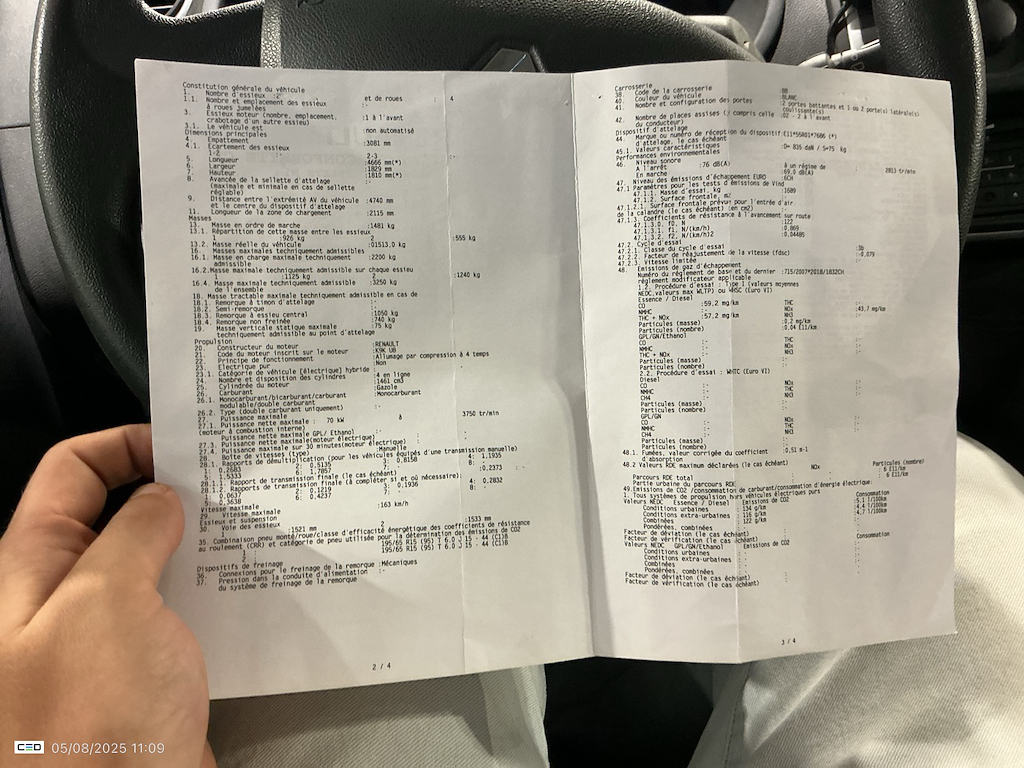 Constitution générale du véhicule
1. Nombre d'essieux :2 et de roues : 4
1.1. Nombre et emplacement des essieux :-
à roues jumelées
3. Essieux moteur (nombre, emplacement, :1 à l'avant
crabotage d'un autre essieu)
3.1. Le véhicule est :non automatisé
Dimensions principales
4. Empattement :3081 mm
4.1. Ecartement des essieux
1-2 2-3 :-
5. Longueur :4666 mm(*)
6. Largeur :1829 mm
7. Hauteur :1810 mm(*)
8. Avancée de la sellette d'attelage :-
(maximale et minimale en cas de sellette
réglable)
9. Distance entre l'extrémité AV du véhicule :4740 mm
et le centre du dispositif d'attelage
11. Longueur de la zone de chargement :2115 mm
Masses
13. Masse en ordre de marche :1481 kg
13.1. Répartition de cette masse entre les essieux
1 :926 kg 2 :555 kg
13.2. Masse réelle du véhicule :01513,0 kg
16. Masses maximales techniquement admissibles
16.1. Masse en charge maximale techniquement :2200 kg
admissible
16.2.Masse maximale techniquement admissible sur chaque essieu
1 :1125 kg 2 :1240 kg
16.4. Masse maximale techniquement admissible :3250 kg
de l'ensemble
18. Masse tractable maximale techniquement admissible en cas de
18.1. Remorque à timon d'attelage :-
18.2. Semi-remorque :-
18.3. Remorque à essieu central :1050 kg
18.4. Remorque non freinée :740 kg
19. Masse verticale statique maximale :75 kg
techniquement admissible au point d'attelage
Propulsion
20. Constructeur du moteur :RENAULT
21. Code du moteur inscrit sur le moteur :K9K U8
22. Principe de fonctionnement :Allumage par compression à 4 temps
23. Electrique pur :Non
23.1. Catégorie de véhicule [électrique] hybride :-
24. Nombre et disposition des cylindres :4 en ligne
25. Cylindrée du moteur :1461 cm3
26. Carburant :Gazole
26.1. Monocarburant/bicarburant/carburant :Monocarburant
modulable/double carburant
26.2. Type (double carburant uniquement) :-
27. Puissance maximale
27.1. Puissance nette maximale : 70 kW à 3750 tr/min
(moteur à combustion interne)
Puissance nette maximale GPL/ Ethanol :-
Puissance nette maximale(moteur électrique) :-
27.3. Puissance maximale sur 30 minutes(moteur électrique) :-
27.4. Boîte de vitesses (type) :Manuelle
28. Rapports de démultiplication (pour les véhicules équipés d'une transmission manuelle)
28.1. Rapport de transmission finale (le cas échéant)
28.1.1. Rapports de transmission finale (à compléter si et où nécessaire):
28.1.2.
Vitesse maximale
29. Vitesse maximale :163 km/h
Essieux et suspension
30. Voie des essieux :1521 mm 2 :1533 mm
35. Combinaison pneu monté/roue/classe d'efficacité énergétique des coefficients de résistance
au roulement (CRR) et catégorie de pneu utilisée pour la détermination des émissions de CO2
1 : 195/65 R15 (95) T 6.0 J 15 - 44 (C1)B
2 : 195/65 R15 (95) T 6.0 J 15 - 44 (C1)B
Dispositifs de freinage
36. Connexions pour le freinage de la remorque :Mécaniques
37. Pression dans la conduite d'alimentation :-
du système de freinage de la remorque
2 / 4
Carrosserie
38. Code de la carrosserie :BB
40. Couleur du véhicule :BLANC
41. Nombre et configuration des portes :2 portes battantes et 1 ou 2 porte(s) latérale(s)
coulissante(s)
42. Nombre de places assises (y compris celle :02 - 2 à l'avant
du conducteur)
Dispositif d'attelage
44. Marque ou numéro de réception du dispositif:E11*55R01*7686 (*)
d'attelage, le cas échéant
45.1. Valeurs caractéristiques :D= 835 daN / S=75 kg
Performances environnementales
46. Niveau sonore
A l'arrêt :76 dB(A) à un régime de : 2813 tr/min
En marche :69,0 dB(A)
47. Niveau des émissions d'échappement EURO :6CH
47.1 Paramètres pour les tests d'émissions de Vind
47.1.1. Masse d'essai, kg :1689
47.1.2. Surface frontale, m2 :-
47.1.2.1. Surface frontale prévue pour l'entrée d'air
de la calandre (le cas échéant) (en cm2) :-
47.1.3. Coefficients de résistance à l'avancement sur route
47.1.3.0. f0, N :122
47.1.3.1. f1, N/(km/h) :0,869
47.1.3.2. f2, N/(km/h)2 :0,04485
47.2. Cycle d'essai
47.2.1. Classe du cycle d'essai :3b
47.2.2. Facteur de réajustement de la vitesse (fdsc) :-0,079
47.2.3. Vitesse limitée :-
48. Emissions de gaz d'échappement
Numéro du règlement de base et du dernier :715/2007*2018/1832CH
règlement modificateur applicable
1.2. Procédure d'essai : Type I (valeurs moyennes
NEDC,valeurs max WLTP) ou WHSC (Euro VI)
Essence / Diesel
CO :59.2 mg/km THC :-
NMHC :- NOx :43,7 mg/km
THC + NOx :57.2 mg/km NH3 :-
Particules (masse) :0,2 mg/km
Particules (nombre) :0,04 E11/km
GPL/GN/Ethanol
CO :- THC :-
NMHC :- NOx :-
THC + NOx :- NH3 :-
Particules (masse) :-
Particules (nombre) :-
2.2. Procédure d'essai : WHTC (Euro VI)
Diesel
CO :- NOx :-
NMHC :- THC :-
CH4 :- NH3 :-
Particules (masse) :-
Particules (nombre) :-
GPL/GN
CO :- NOx :-
NMHC :- THC :-
CH4 :- NH3 :-
Particules (masse) :-
Particules (nombre) :-
48.1. Fumées, valeur corrigée du coefficient :0,51 m-1
d'absorption
48.2 Valeurs RDE maximum déclarées (le cas échéant)
NOx Particules (nombre)
Parcours RDE total : 6 E11/km
Partie urbaine du parcours RDE : 6 E11/km
49.Emissions de CO2 /consommation de carburant/consommation d'énergie électrique:
1. Tous systèmes de propulsion hors véhicules électriques purs
Valeurs NEDC Essence / Diesel Emissions de CO2 Consommation
Conditions urbaines : 134 g/km :5.1 l/100km
Conditions extra-urbaines : 116 g/km :4.4 l/100km
Combinées : 122 g/km :4.7 l/100km
Pondérées, combinées :- :-
Facteur de déviation (le cas échéant) :-
Facteur de vérification (le cas échéant) :-
Valeurs NEDC GPL/GN/Ethanol Emissions de CO2 Consommation
Conditions urbaines :- :-
Conditions extra-urbaines :- :-
Combinées :- :-
Pondérées, combinées :- :-
Facteur de déviation (le cas échéant) :-
Facteur de vérification (le cas échéant) :-
3 / 4
CEO 05/08/2025 11:09